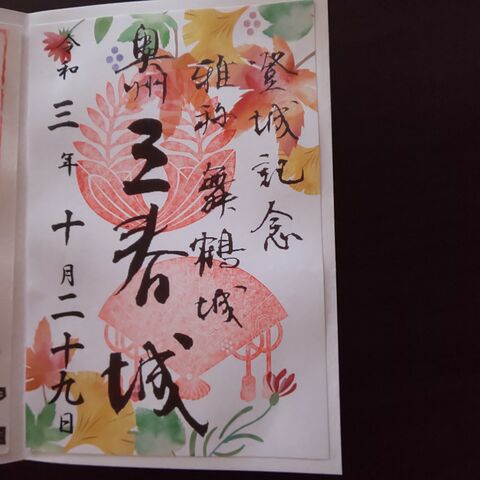 登城記念
雅称 舞鶴城
奥州
三春城
令和三年十月二十九日